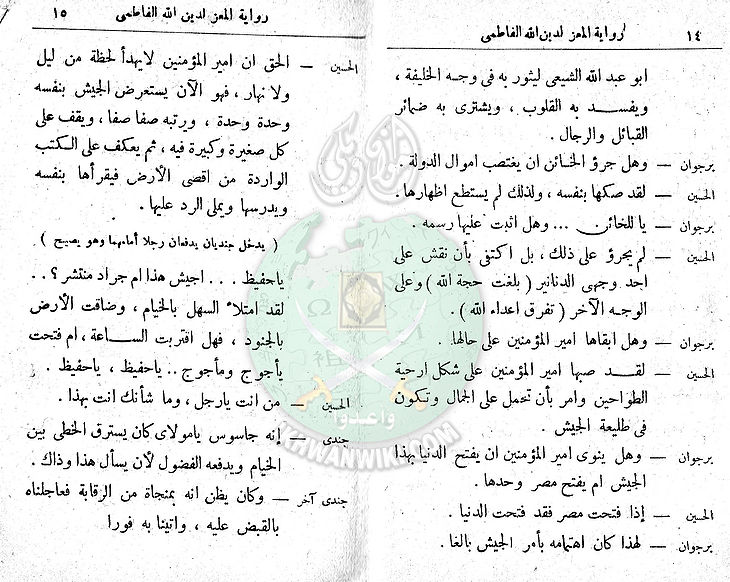 ١٤ رواية المعز لدين الله الفاطمى
ابو عبد الله الشيعى ليثور به فى وجه الخليفة ،
ويفسد به القلوب ، ويشترى به ضمائر
القبائل والرجال .
برجوان — وهل جرؤ الخائن ان يغتصب اموال الدولة .
الحسين — لقد صكها بنفسه ، ولذلك لم يستطع اظهارها .
برجوان — يا للخائن ... وهل اثبت عليها رسمه .
الحسين — لم يجرؤ على ذلك ، بل اكتفى بأن نقش على
احد وجهى الدنانير ( بلغت حجة الله ) وعلى
الوجه الآخر ( تفرق اعداء الله ) .
برجوان — وهل ابقاها امير المؤمنين على حالها .
الحسين — لقد صبها امير المؤمنين على شكل ارحية
الطواحين وامر بأن تحمل على الجمال وتكون
فى طليعة الجيش .
برجوان — وهل ينوى امير المؤمنين ان يفتح الدنيا بهذا
الجيش ام يفتح مصر وحدها .
الحسين — إذا فتحت مصر فقد فتحت الدنيا .
برجوان — لهذا كان اهتمامه بأمر الجيش بالغا .
رواية المعز لدين الله الفاطمى ١٥
الحسين — الحق ان امير المؤمنين لا يهدأ لحظة من ليل
ولا نهار ، فهو الآن يستعرض الجيش بنفسه
وحدة وحدة ، ويرتبه صفا صفا ، ويقف على
كل صغيرة وكبيرة فيه ، ثم يعكف على الكتب
الواردة من اقصى الأرض فيقرأها بنفسه
ويدرسها ويملى الرد عليها .
( يدخل جنديان يدفعان رجلا أمامهما وهو يصيح )
ياحفيظ ... اجيش هذا ام جراد منتشر ؟ ..
لقد امتلأ السهل بالخيام ، وضاقت الأرض
بالجنود ، فهل اقتربت الساعة ، ام فتحت
يأجوج ومأجوج .. ياحفيظ ، ياحفيظ .
الحسين — من انت يارجل ، وما شأنك انت بهذا .
جندى — إنه جاسوس يامولاى كان يسترق الخطى بين
الخيام ويدفعه الفضول لأن يسأل هذا وذاك .
جندى آخر — وكان يظن انه بمنجاة من الرقابة فعاجلناه
بالقبض عليه ، واتينا به فورا
وأعدوا
IKHWANWIKI.COM